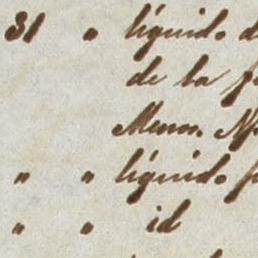 31 " líquido d
de la f
Menor, N
" " líquido f
" " id